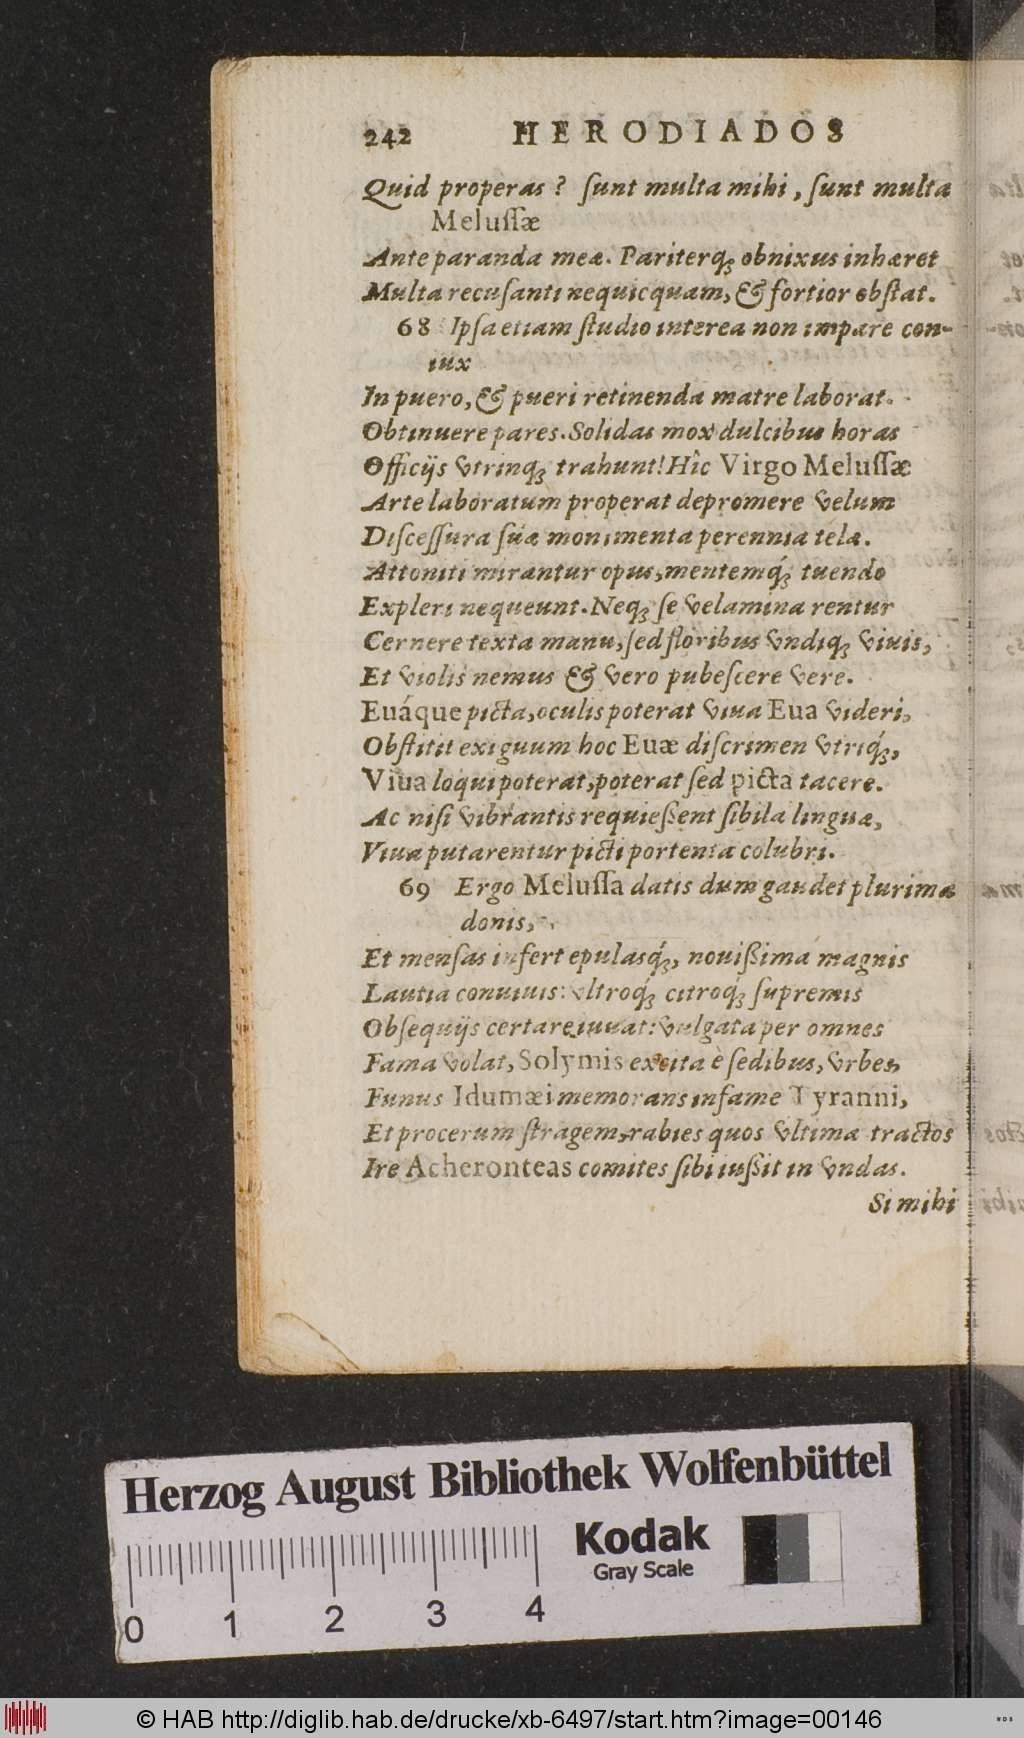 242 HERODIADOS
Quid properas? ſunt multa mihi, ſunt multa
Meluſſæ
Ante paranda meæ. Pariterq́ꝫ obnixus inhæret
Multa recuſanti nequicquam, & fortior obſtat.
68 Ipſa etiam ſtudio interea non impare con-
iux
In puero, & pueri retinenda matre laborat.
Obtinuere pares. Solidas mox dulcibus horas
Officijs vtrinqꝫ trahunt! Hîc Virgo Meluſſæ
Arte laboratum properat depromere velum
Diſceſſura ſuæ monimenta perennia telæ.
Attoniti mirantur opus, mentemq́ꝫ tuendo
Expleri nequeunt. Neqꝫ ſe velamina rentur
Cernere texta manu, ſed floribus vndiqꝫ viuis,
Et violis nemus & vero pubeſcere vere.
Euáque picta, oculis poterat viua Eua videri,
Obſtitit exiguum hoc Euæ diſcrimen vtriq́ꝫ,
Viua loqui poterat, poterat ſed picta tacere.
Ac niſi vibrantis requießent ſibila linguæ,
Viua putarentur picti portenta colubri.
69 Ergo Meluſſa datis dum gaudet plurima
donis,
Et menſas infert epulasq́ꝫ, nouißima magnis
Lautia conuiuis: vltroq́ꝫ citroq́ꝫ ſupremis
Obſequijs certare iuuat: vulgata per omnes
Fama volat, Solymis excita è ſedibus, vrbes,
Funus Idumæi memorans infame Tyranni,
Et procerum ſtragem, rabies quos vltima tractos
Ire Acheronteas comites ſibi iußit in vndas.
Si mihi
Herzog August Bibliothek Wolfenbüttel
Kodak
Gray Scale
0 1 2 3 4
© HAB http://diglib.hab.de/drucke/xb-6497/start.htm?image=00146